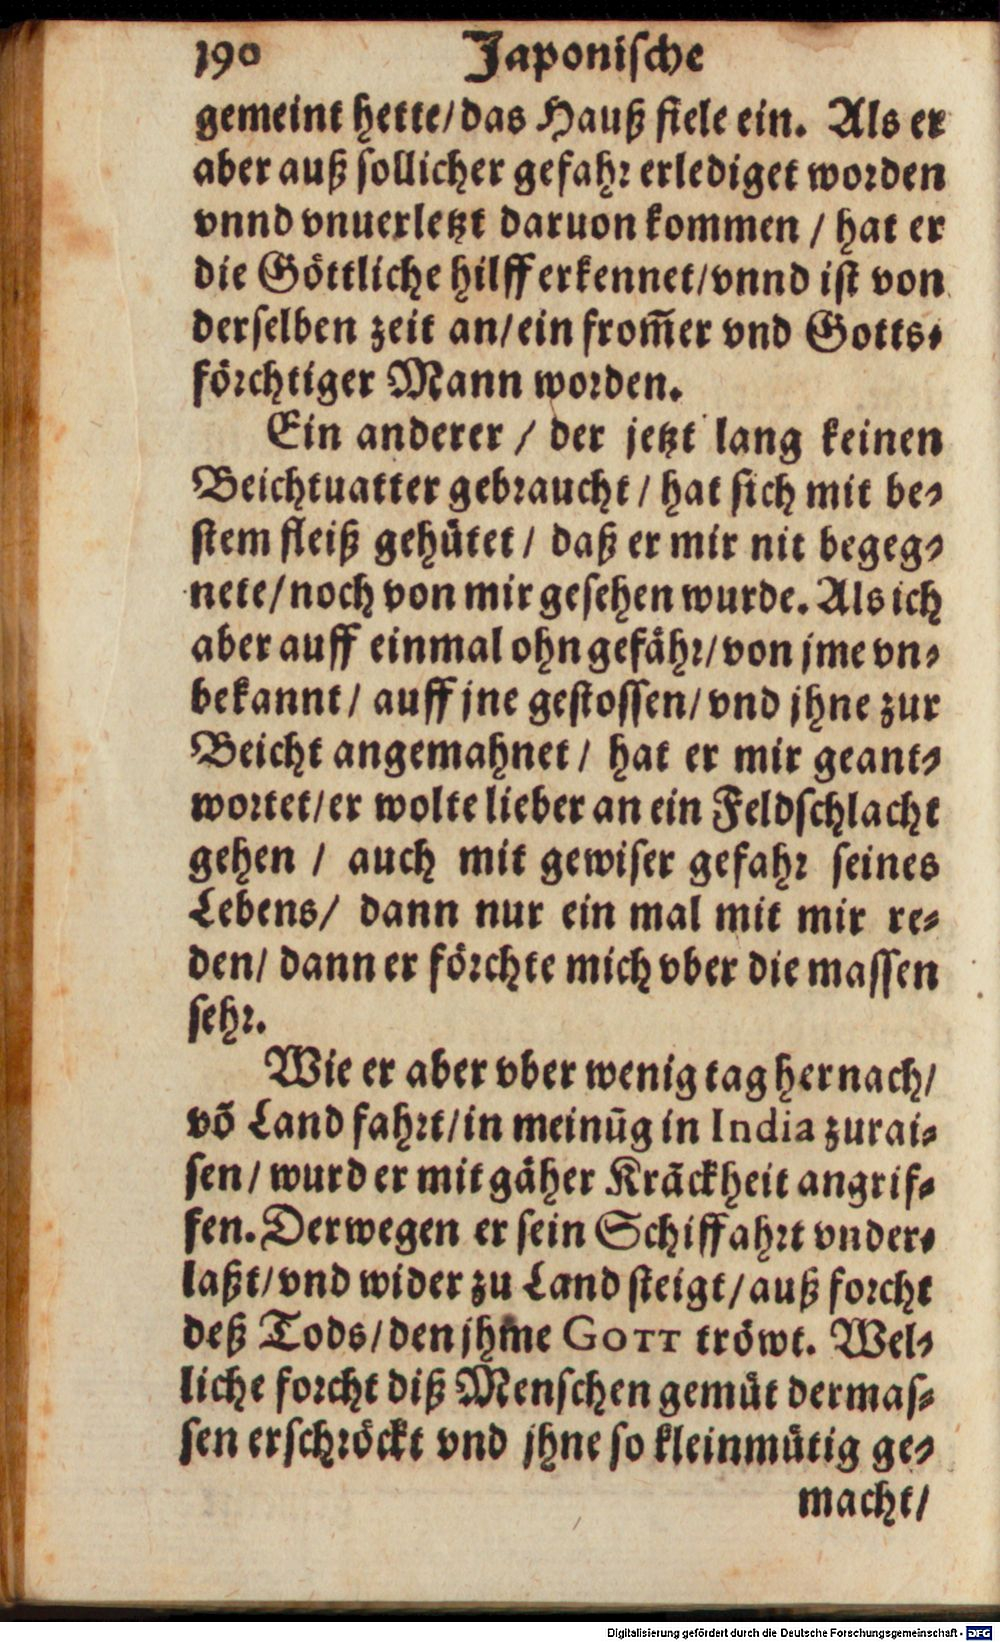 190 Japonische
gemeint hette/das Hauß fiele ein. Als er
aber auß sollicher gefahr erlediget worden
vnnd vnuerletzt daruon kommen / hat er
die Göttliche hilff erkennet/vnnd ist von
derselben zeit an/ein from̃er vnd Gotts-
förchtiger Mann worden.
Ein anderer / der jetzt lang keinen
Beichtuatter gebraucht / hat sich mit be-
stem fleiß gehütet / daß er mir nit begeg-
nete/noch von mir gesehen wurde. Als ich
aber auff einmal ohn gefähr/von jme vn-
bekannt/ auff jne gestossen/vnd jhne zur
Beicht angemahnet / hat er mir geant-
wortet/er wolte lieber an ein Feldschlacht
gehen / auch mit gewiser gefahr seines
Lebens/ dann nur ein mal mit mir re-
den/ dann er förchte mich vber die massen
sehr.
Wie er aber vber wenig tag hernach/
võ Land fahrt/in meinũg in India zurai-
sen/ wurd er mit gäher Krãckheit angrif-
fen. Derwegen er sein Schiffahrt vnder-
laßt/vnd wider zu Land steigt/auß forcht
deß Tods/den jhme GOTT tröwt. Wel-
liche forcht diß Menschen gemüt dermas-
sen erschröckt vnd jhne so kleinmütig ge-
macht/
Digitalisierung gefördert durch die Deutsche Forschungsgemeinschaft - DFG